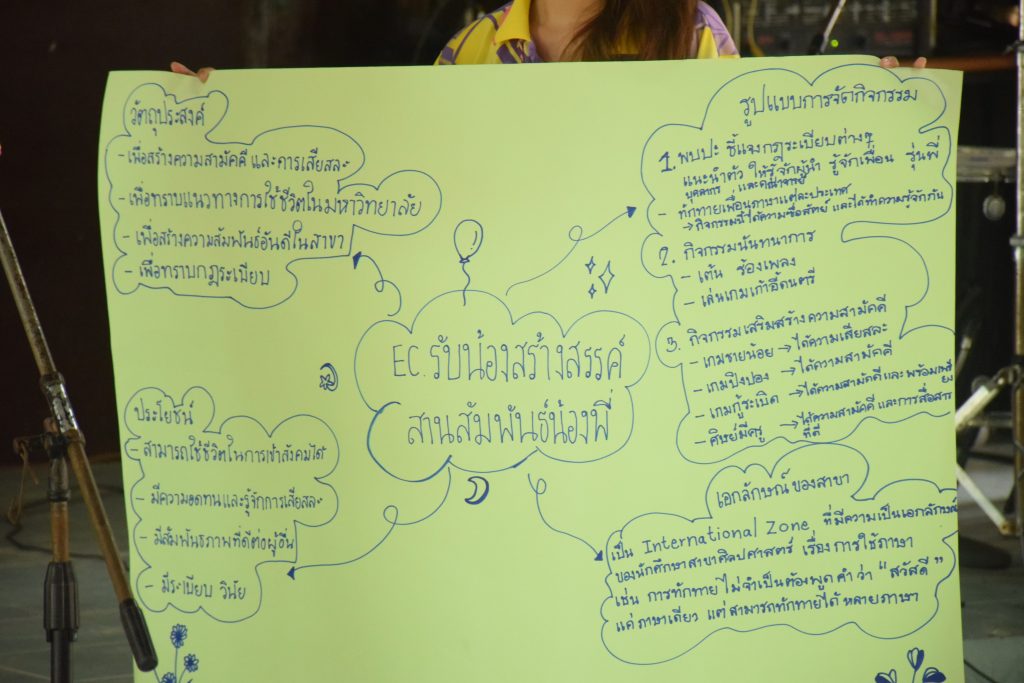 วัตถุประสงค์
- เพื่อสร้างความสามัคคี และการเสียสละ
- เพื่อทราบแนวทางการใช้ชีวิตในมหาวิทยาลัย
- เพื่อสร้างความสัมพันธ์อันดีในสาขา
- เพื่อทราบกฎระเบียบ
EC. รับน้องสร้างสรรค์
สานสัมพันธ์น้องพี่
ประโยชน์
- สามารถใช้ชีวิตในการเข้าสังคมได้
- มีความอดทนและรู้จักการเสียสละ
- มีสัมพันธภาพที่ดีต่อผู้อื่น
- มีระเบียบ วินัย
รูปแบบการจัดกิจกรรม
1. พบปะ ชี้แจงกฎระเบียบต่างๆ
แนะนำตัว ให้รู้จักผู้นำ รู้จักเพื่อน รุ่นพี่
บุคลากร และคณาจารย์
- ทักทายเพื่อนภาษาแต่ละประเทศ
→ กิจกรรมนี้ได้ความซื่อสัตย์ และได้ทำความรู้จักกัน
2. กิจกรรมนันทนาการ
- เต้น ร้องเพลง
- เล่นเกมเก้าอี้ดนตรี
3. กิจกรรมเสริมสร้างความสามัคคี
- เกมชายน้อย → ได้ความเสียสละ
- เกมปิงปอง → ได้ความสามัคคี
- เกมกู้ระเบิด → ได้ความสามัคคี และ พร้อมเพรียง
- ศิษย์มีครู → ได้ความสามัคคี และการสื่อสาร
ที่ดี
เอกลักษณ์ของสาขา
เป็น International Zone, ที่มีความเป็นเอกลักษณ์
ของนักศึกษาสาขาศิลปศาสตร์ เรื่อง การใช้ภาษา
เช่น การทักทาย ไม่จำเป็นต้องพูด คำ ว่า "สวัสดี"
แค่ ภาษาเดียว แต่ สามารถทักทายได้ หลายภาษา